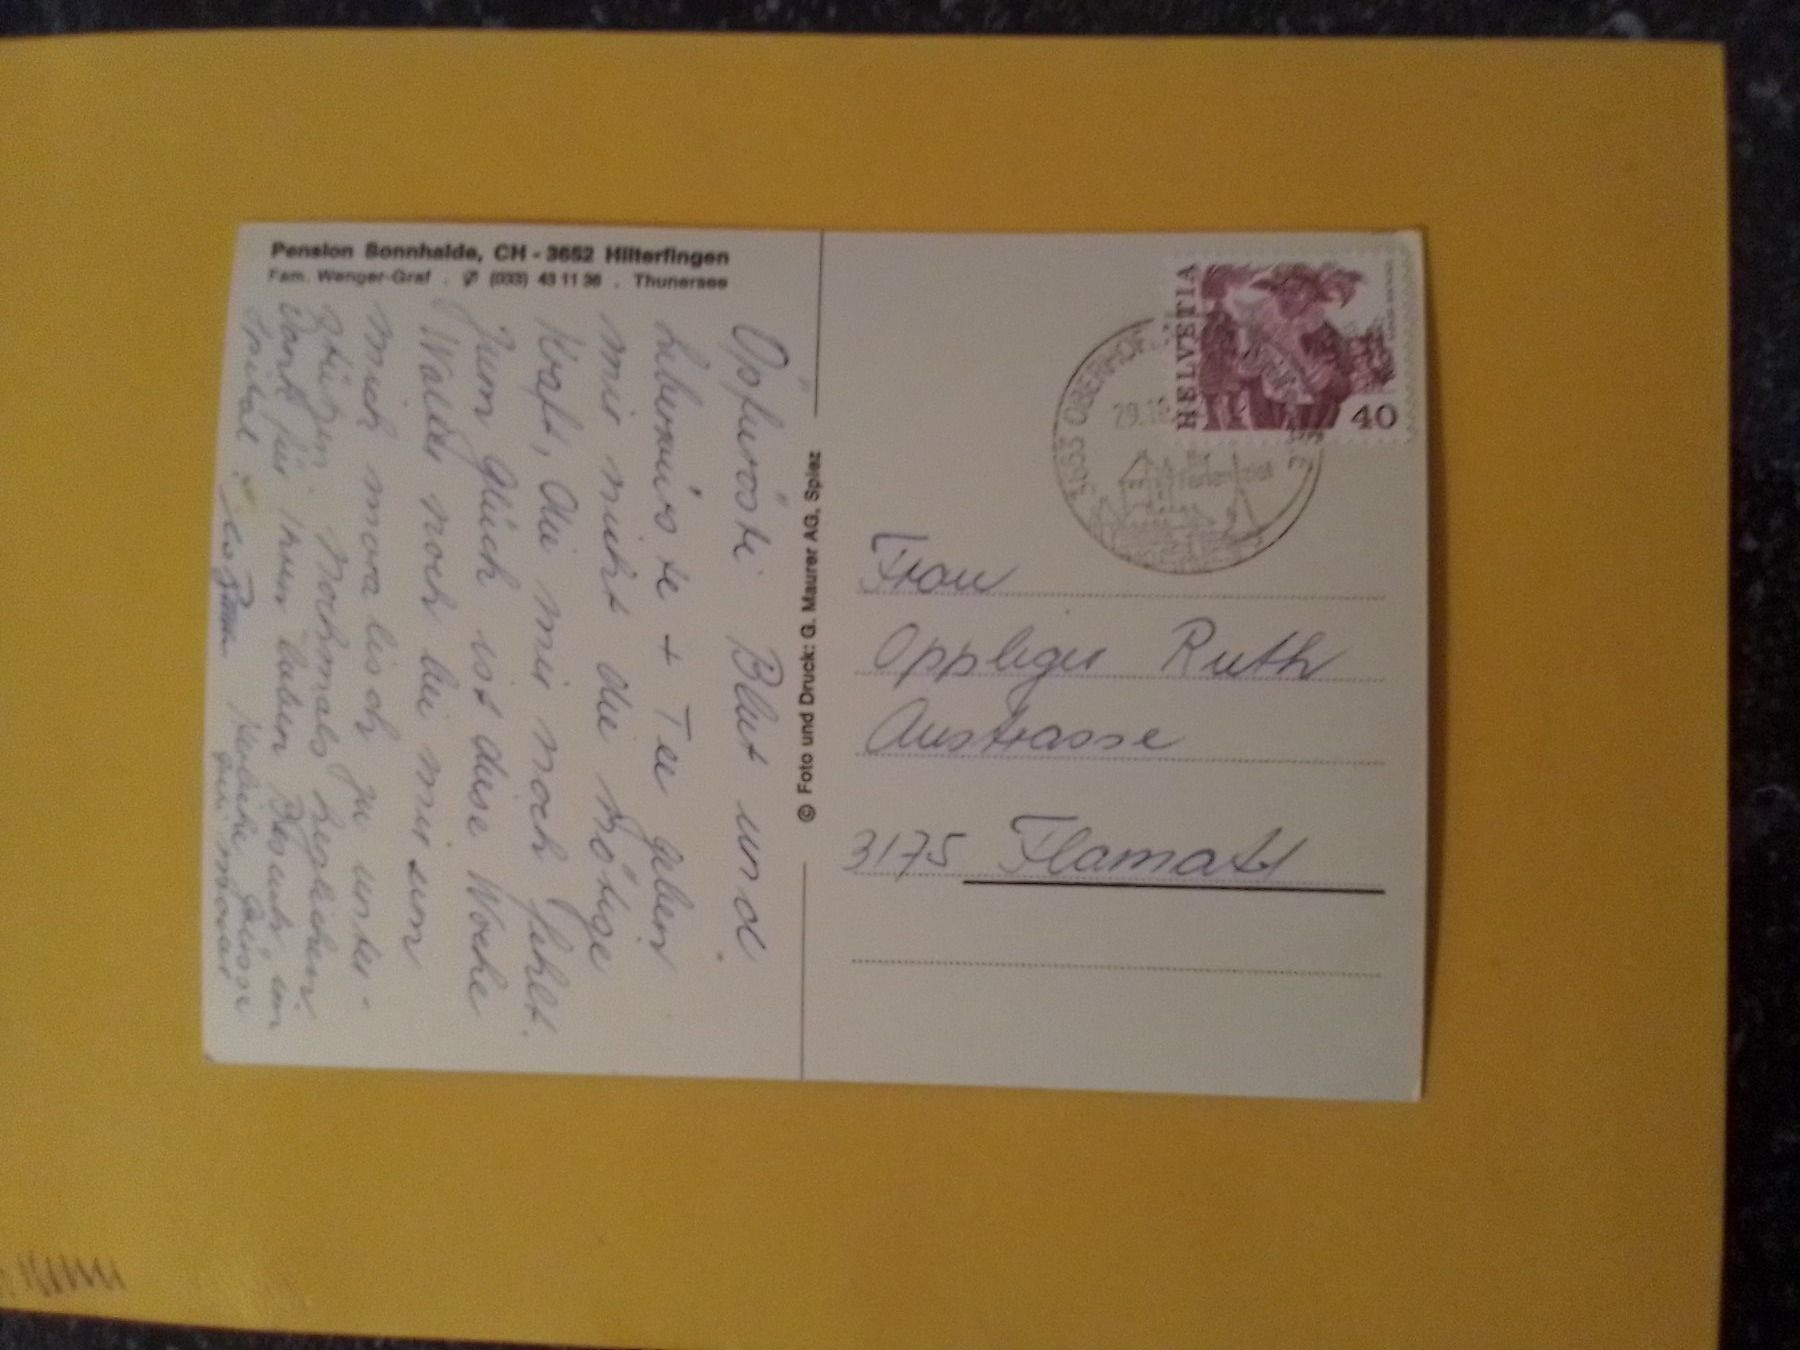 Pension Sonnhalde, CH - 3652 Hilterfingen
Fam. Wenger-Graf . (033) 43 11 36 . Thunersee
Öpfuröste Blut und
Leberwürste + Tee geben
mir nicht die nötige
Kraft, die mir noch fehlt.
Zum Glück ist diese Woche
Walter noch bei mir um
mich moralisch zu unter-
stützen. Nochmals herzlichen
Dank für Ihren lieben Besuch im
Spital.
Herzliche Grüsse
© Foto und Druck: G. Maurer AG, Spiez
HELVETIA
40
3653 OBERHOF
29.10
Ferienziel
Frau
Oppliger Ruth
Austrasse
3175 Flamatt